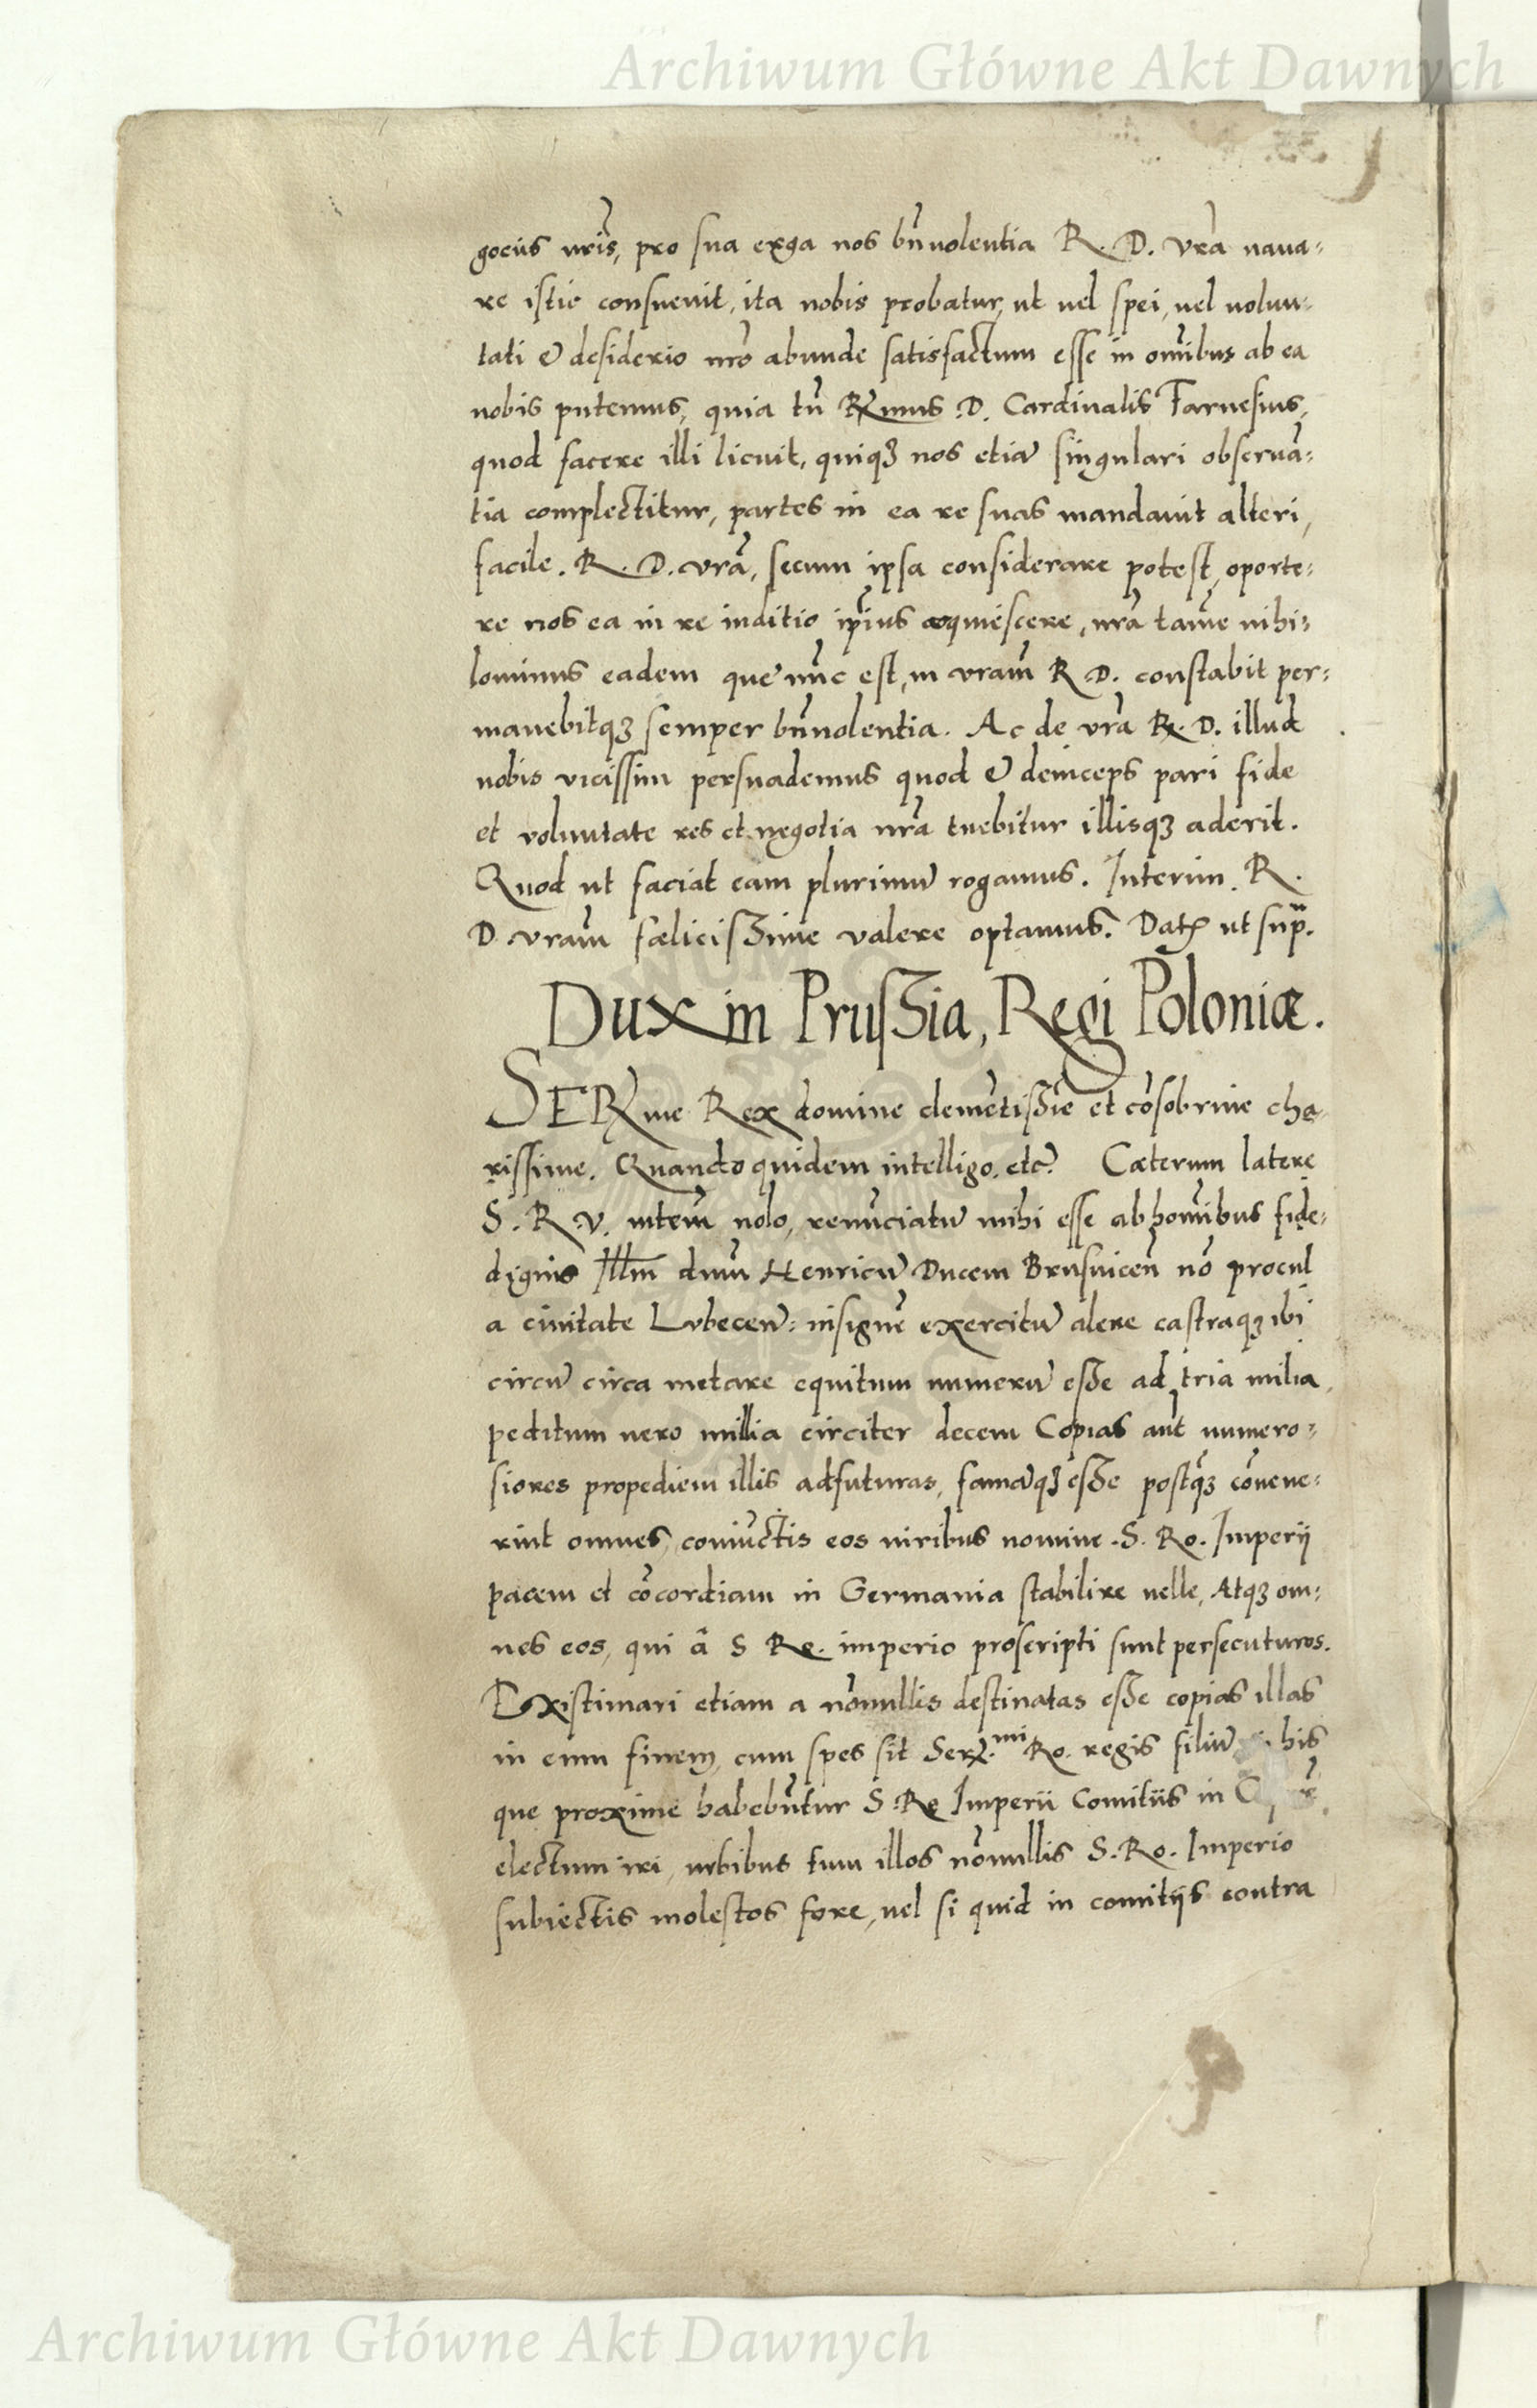 Archiwum Główne Akt Dawnych
gociis nr̃is, pro sua erga nos bñuolentia R. D. vr̃a naua-
re istic consueuit, ita nobis probatur, ut uel spei, uel volun-
tati & desiderio nr̃o abunde satisfactum esse in om̃ibus ab ea
nobis putemus, quia tñ Rx̃mus D. Cardinalis Farnesius,
quod facere illi licuit, quiq3 nos etiã singulari obseruã-
tia complectitur, partes in ea re suas mandauit alteri,
facile. R. D. vrã, secum ipsa considerare potest, oporte-
re nos ea in re iuditio ip̃ius acquiescere, nrã tamẽ nihi-
lominus eadem que nũc est, in vram̃ R D. constabit per-
manebitq3 semper bñuolentia. Ac de vrã R. D. illud
nobis vicissim persuademus quod & deinceps pari fide
et voluntate res et negotia nrã tuebitur illisq3 aderit.
Quod ut faciat eam plurimũ rogamus. Interim R.
D. vram̃ fælicissime valere optamus. Dat̃ ut sup̃.
Dux in Prussia, Regi Poloniæ.
SERx̃me Rex domine clemẽtissĩe et cõsobrine cha-
rissime. Quandoquidem intelligo. etc̃. Cæterum latere
S. R V. intem̃ nolo, renũciatũ mihi esse ab hom̃ibus fide-
dignis Illm̃ dnũ Henricũ Ducem Brusuiceñ nõ procul
a ciuitate Lubeceñ: insignẽ exercitũ alere castraq3 ibi
circũ circa metare equitum numerũ esse ad tria milia,
peditum uero millia circiter decem Copias aut̃ numero-
siores propediem illis adfuturas, famãq3 esse postq̃3 cõuene-
rint omnes, coniũctis eos uiribus nomine S. Ro. Imperij
pacem et cõcordiam in Germania stabilire uelle, Atq3 om-
nes eos, qui â S Ro. imperio proscripti sunt persecuturos.
Existimari etiam a nõnullis destinatas esse copias illas
in eum finem, cum spes sit Serx.mi Ro. regis filiũ his
que proxime habebũtur S. Ro Imperii Comitiis in
electum iri, urbibus tum illos nõnullis S. Ro. Imperio
subiectis molestos fore, uel si quid in comitijs contra
Archiwum Główne Akt Dawnych